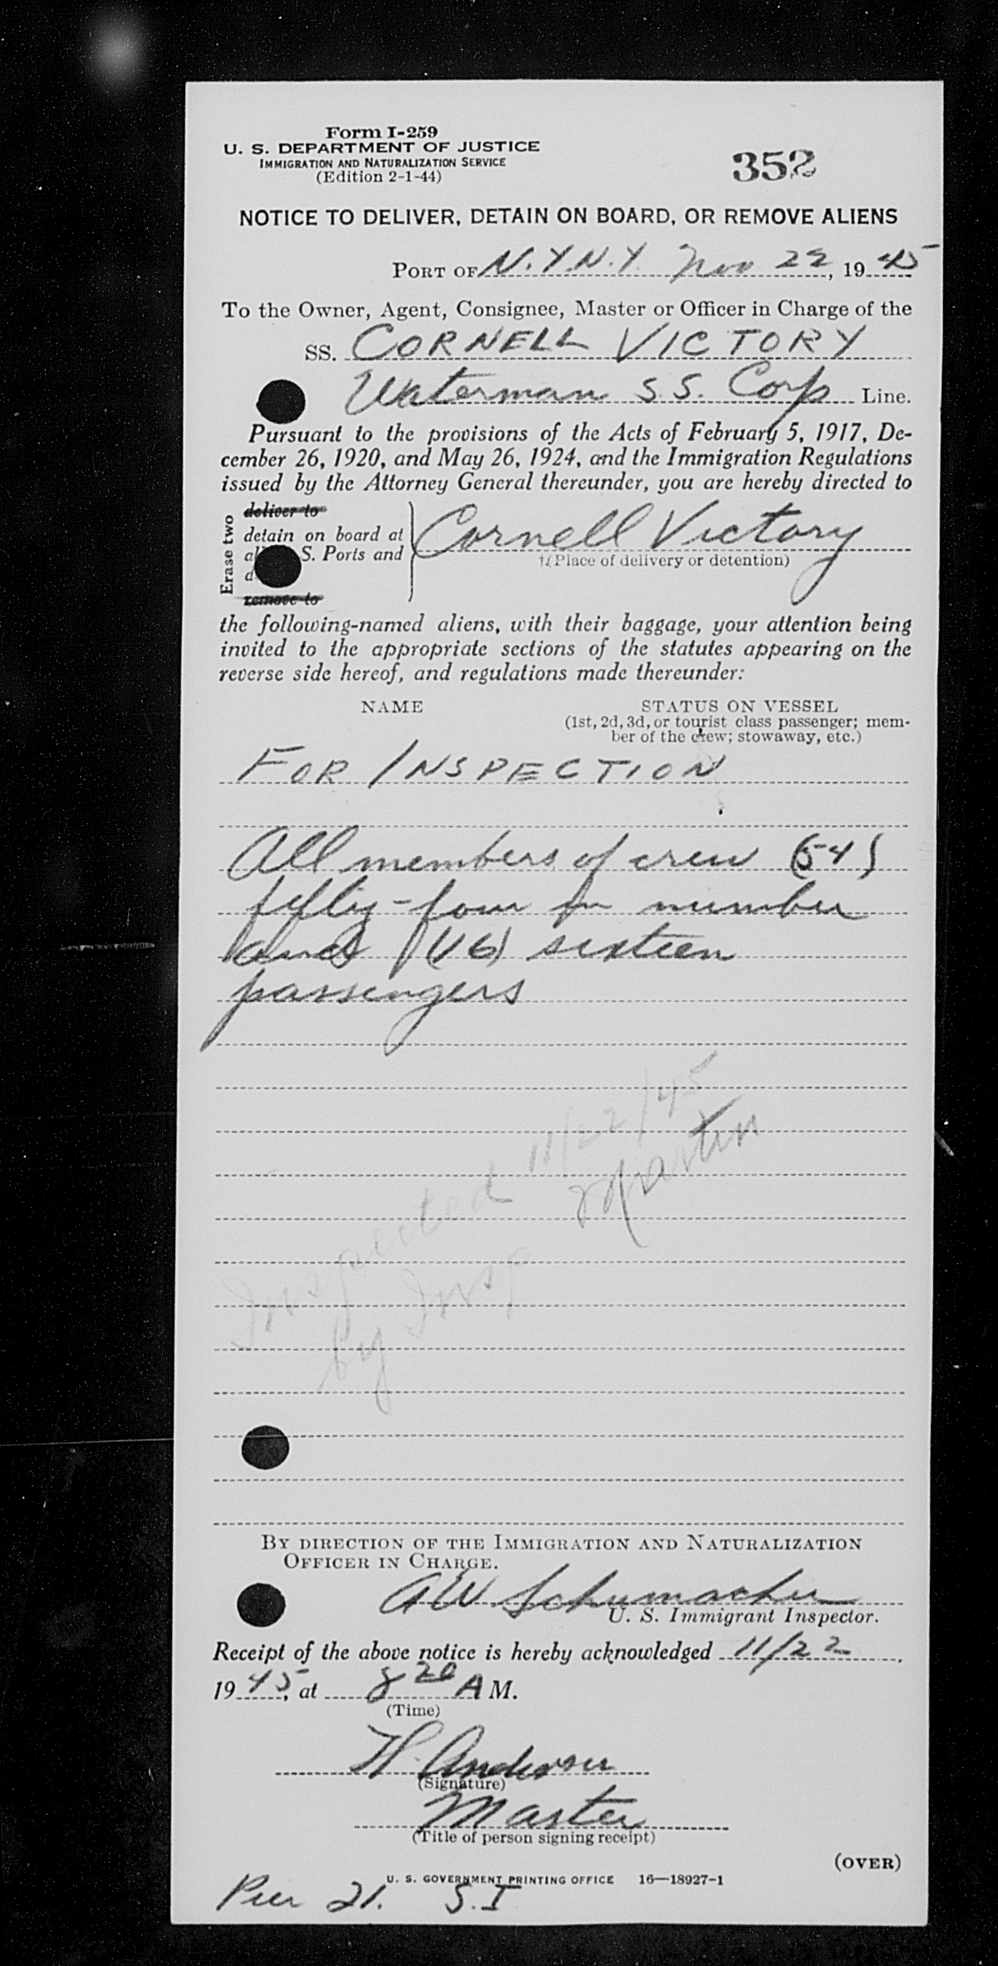 Form I-259
U. S. DEPARTMENT OF JUSTICE
IMMIGRATION AND NATURALIZATION SERVICE
(Edition 2-1-44)
352
NOTICE TO DELIVER, DETAIN ON BOARD, OR REMOVE ALIENS
PORT OF N.Y.N.Y. Nov 22, 19 45
To the Owner, Agent, Consignee, Master or Officer in Charge of the
SS. CORNELL VICTORY
Waterman S.S. Corp Line.
Pursuant to the provisions of the Acts of February 5, 1917, De-
cember 26, 1920, and May 26, 1924, and the Immigration Regulations
issued by the Attorney General thereunder, you are hereby directed to
Erase two
deliver to
detain on board at
al S. Ports and
d
remove to
Cornell Victory
(Place of delivery or detention)
the following-named aliens, with their baggage, your attention being
invited to the appropriate sections of the statutes appearing on the
reverse side hereof, and regulations made thereunder:
NAME STATUS ON VESSEL
(1st, 2d, 3d, or tourist class passenger; mem-
ber of the crew; stowaway, etc.)
FOR INSPECTION
All members of crew (54)
fifty-four in number
and (16) sixteen
passengers
Inspected 11/22/45
by Insp Martin
BY DIRECTION OF THE IMMIGRATION AND NATURALIZATION
OFFICER IN CHARGE.
AW Schumacher
U. S. Immigrant Inspector.
Receipt of the above notice is hereby acknowledged 11/22,
19 45, at 8 20 A M.
(Time)
H. Anderson
(Signature)
Master
(Title of person signing receipt)
(OVER)
U. S. GOVERNMENT PRINTING OFFICE 16—18927-1
Pier 21. S.I